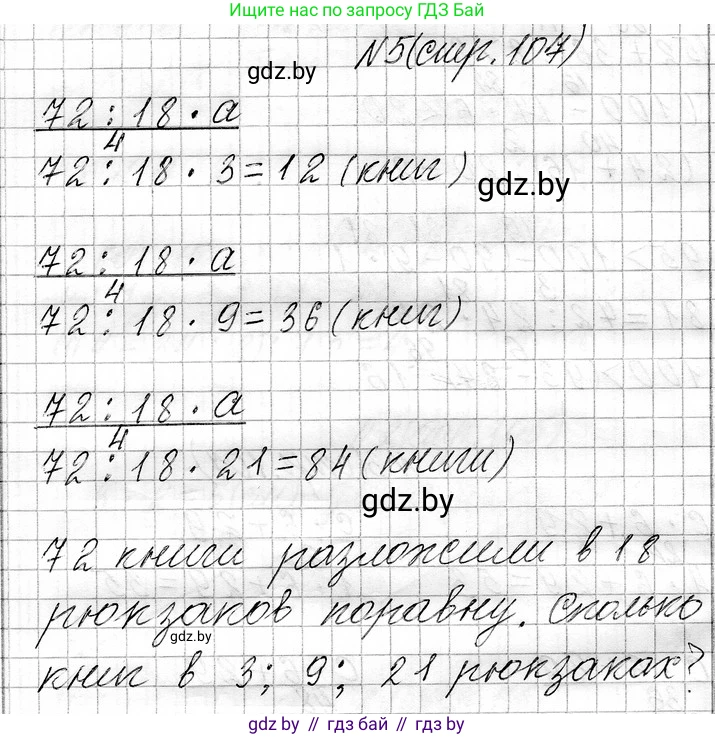 Ищите нас по запросу ГДЗ Бай
N5(стр. 107)
gdz.by
72 : 18 · a
4
72 : 18 · 3 = 12 (книг)
gdz.by
72 : 18 · a
4
72 : 18 · 9 = 36 (книг)
72 : 18 · a
4
72 : 18 · 21 = 84 (книги)
gdz.by
72 книги разложили в 18
рюкзаков поравну. Сколько
gdz.by
книг в 3; 9; 21 рюкзаках?
gdz.by // гдз бай // гдз.by